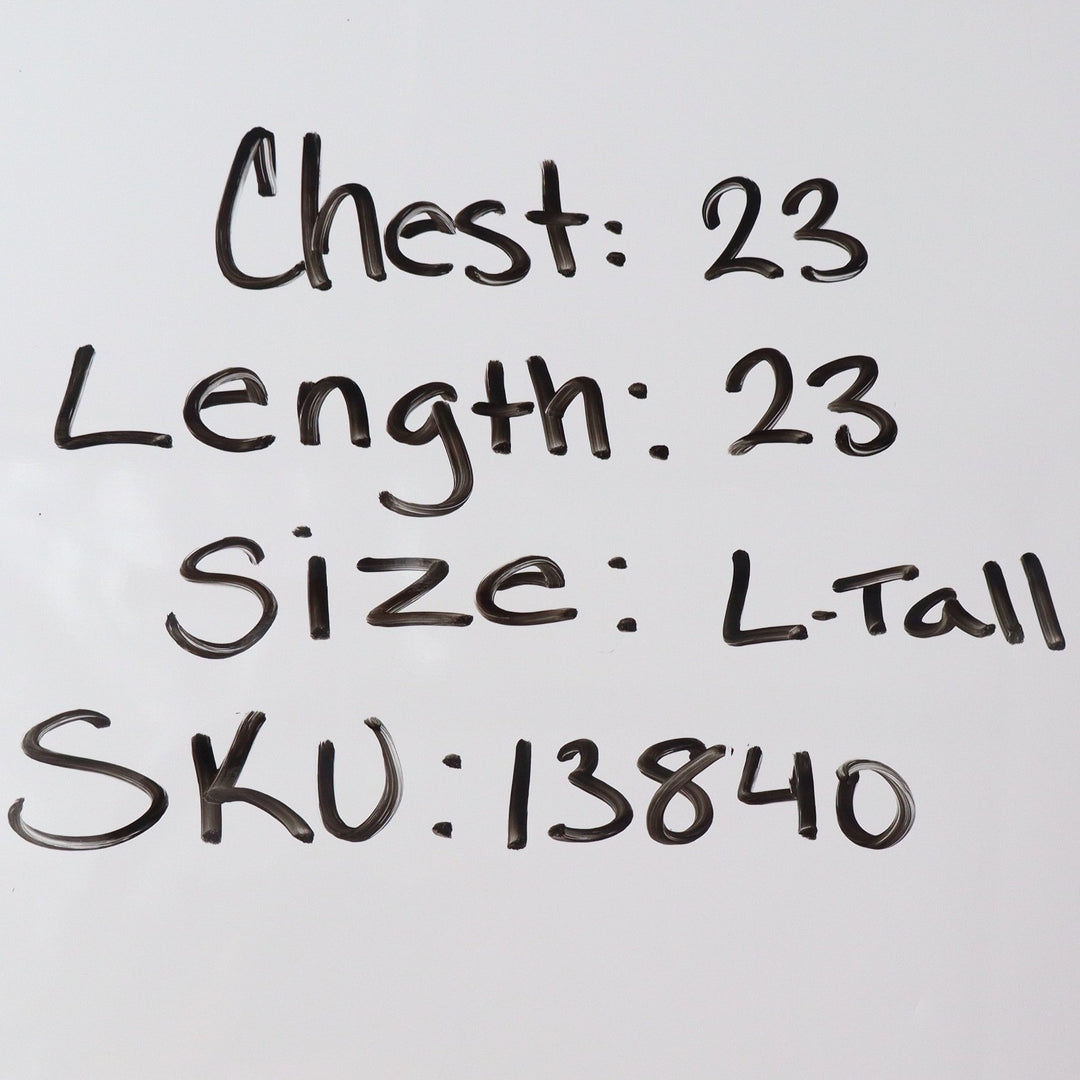 Chest: 23
Length: 23
Size: L-Tall
SKU: 13840